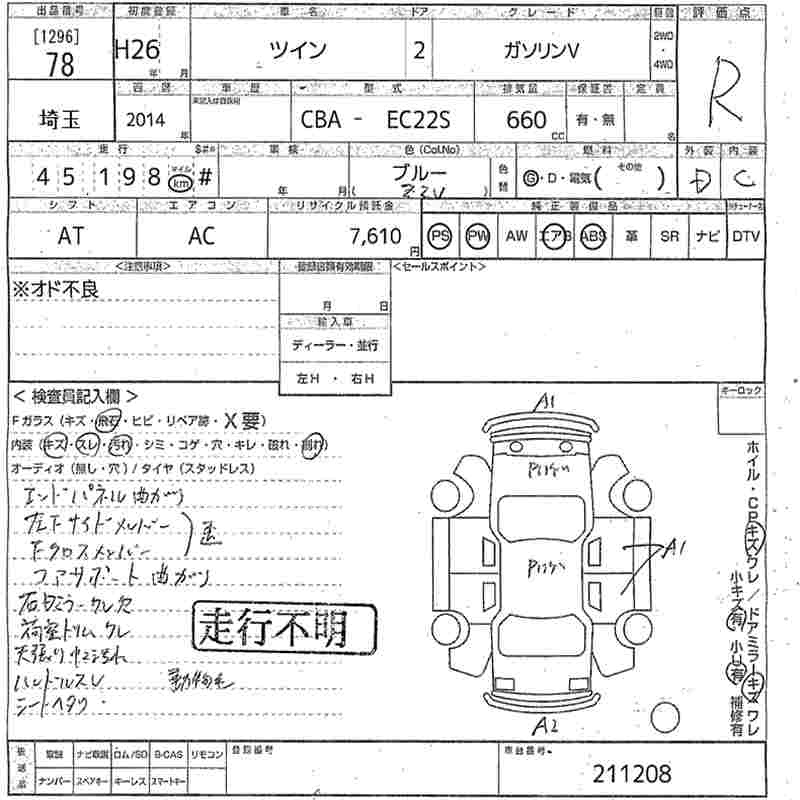 出品番号 初度登録 車名 ドア グレード 自国 評価点
[1296]
78 H26 年 月 ツイン 2 ガソリンV 2WD ・ 4WD R
西暦 車歴 型式 排気量 保証書 定員
埼玉 2014 年 CBA - EC22S 660 CC 有・無 名
走行 車検 色(Col.No) 燃料 外装 内装
45,198 マイル km # 年 月 ブルー ( Z2U ) 色替 G・D・電気( その他 ) D C
シフト エアコン リサイクル預託金 純正装備品
AT AC 7,610 円 PS PW AW エアB ABS 革 SR ナビ DTV
<注意事項> 登録書類有効期限 <セールスポイント>
※オド不良
月 日
輸入車
ディーラー・並行
左H ・ 右H
< 検査員記入欄 > キーロック
Fガラス (キズ・飛石・ヒビ・リペア跡・X要)
内装 (キズ・スレ・汚れ・シミ・コゲ・穴・キレ・破れ・割れ)
オーディオ (無し・穴) / タイヤ (スタッドレス)
エンドパネル曲がり
左下サイドメンバー
下クロスメンバー
歪
コアサポート曲がり
荷室トリムワレ
天張り 中ニ汚れ
ハンドルスレ 動物毛
シートヘタリ
走行不明
A1
A1
A2
ホイル・CPキズワレ/ドアミラーキズワレ
小キズ有 小U有 補修有
後送品 取説 ナビ取説 ロム/SD B-CAS リモコン 登録番号 車台番号
ナンバー スペアキー キーレス スマートキー 211208